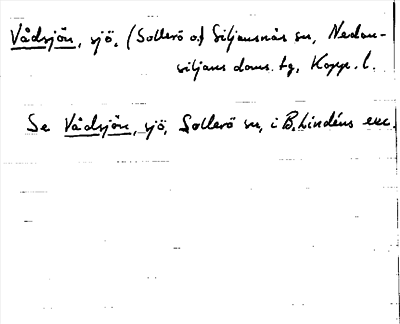 Vådsjön, sjö, (Sollerö o.) Siljansnäs sn, Nedan-
siljans doms. tg, Kopp. l.
Se Vådsjön, sjö, Sollerö sn, i B. Lindéns exc.